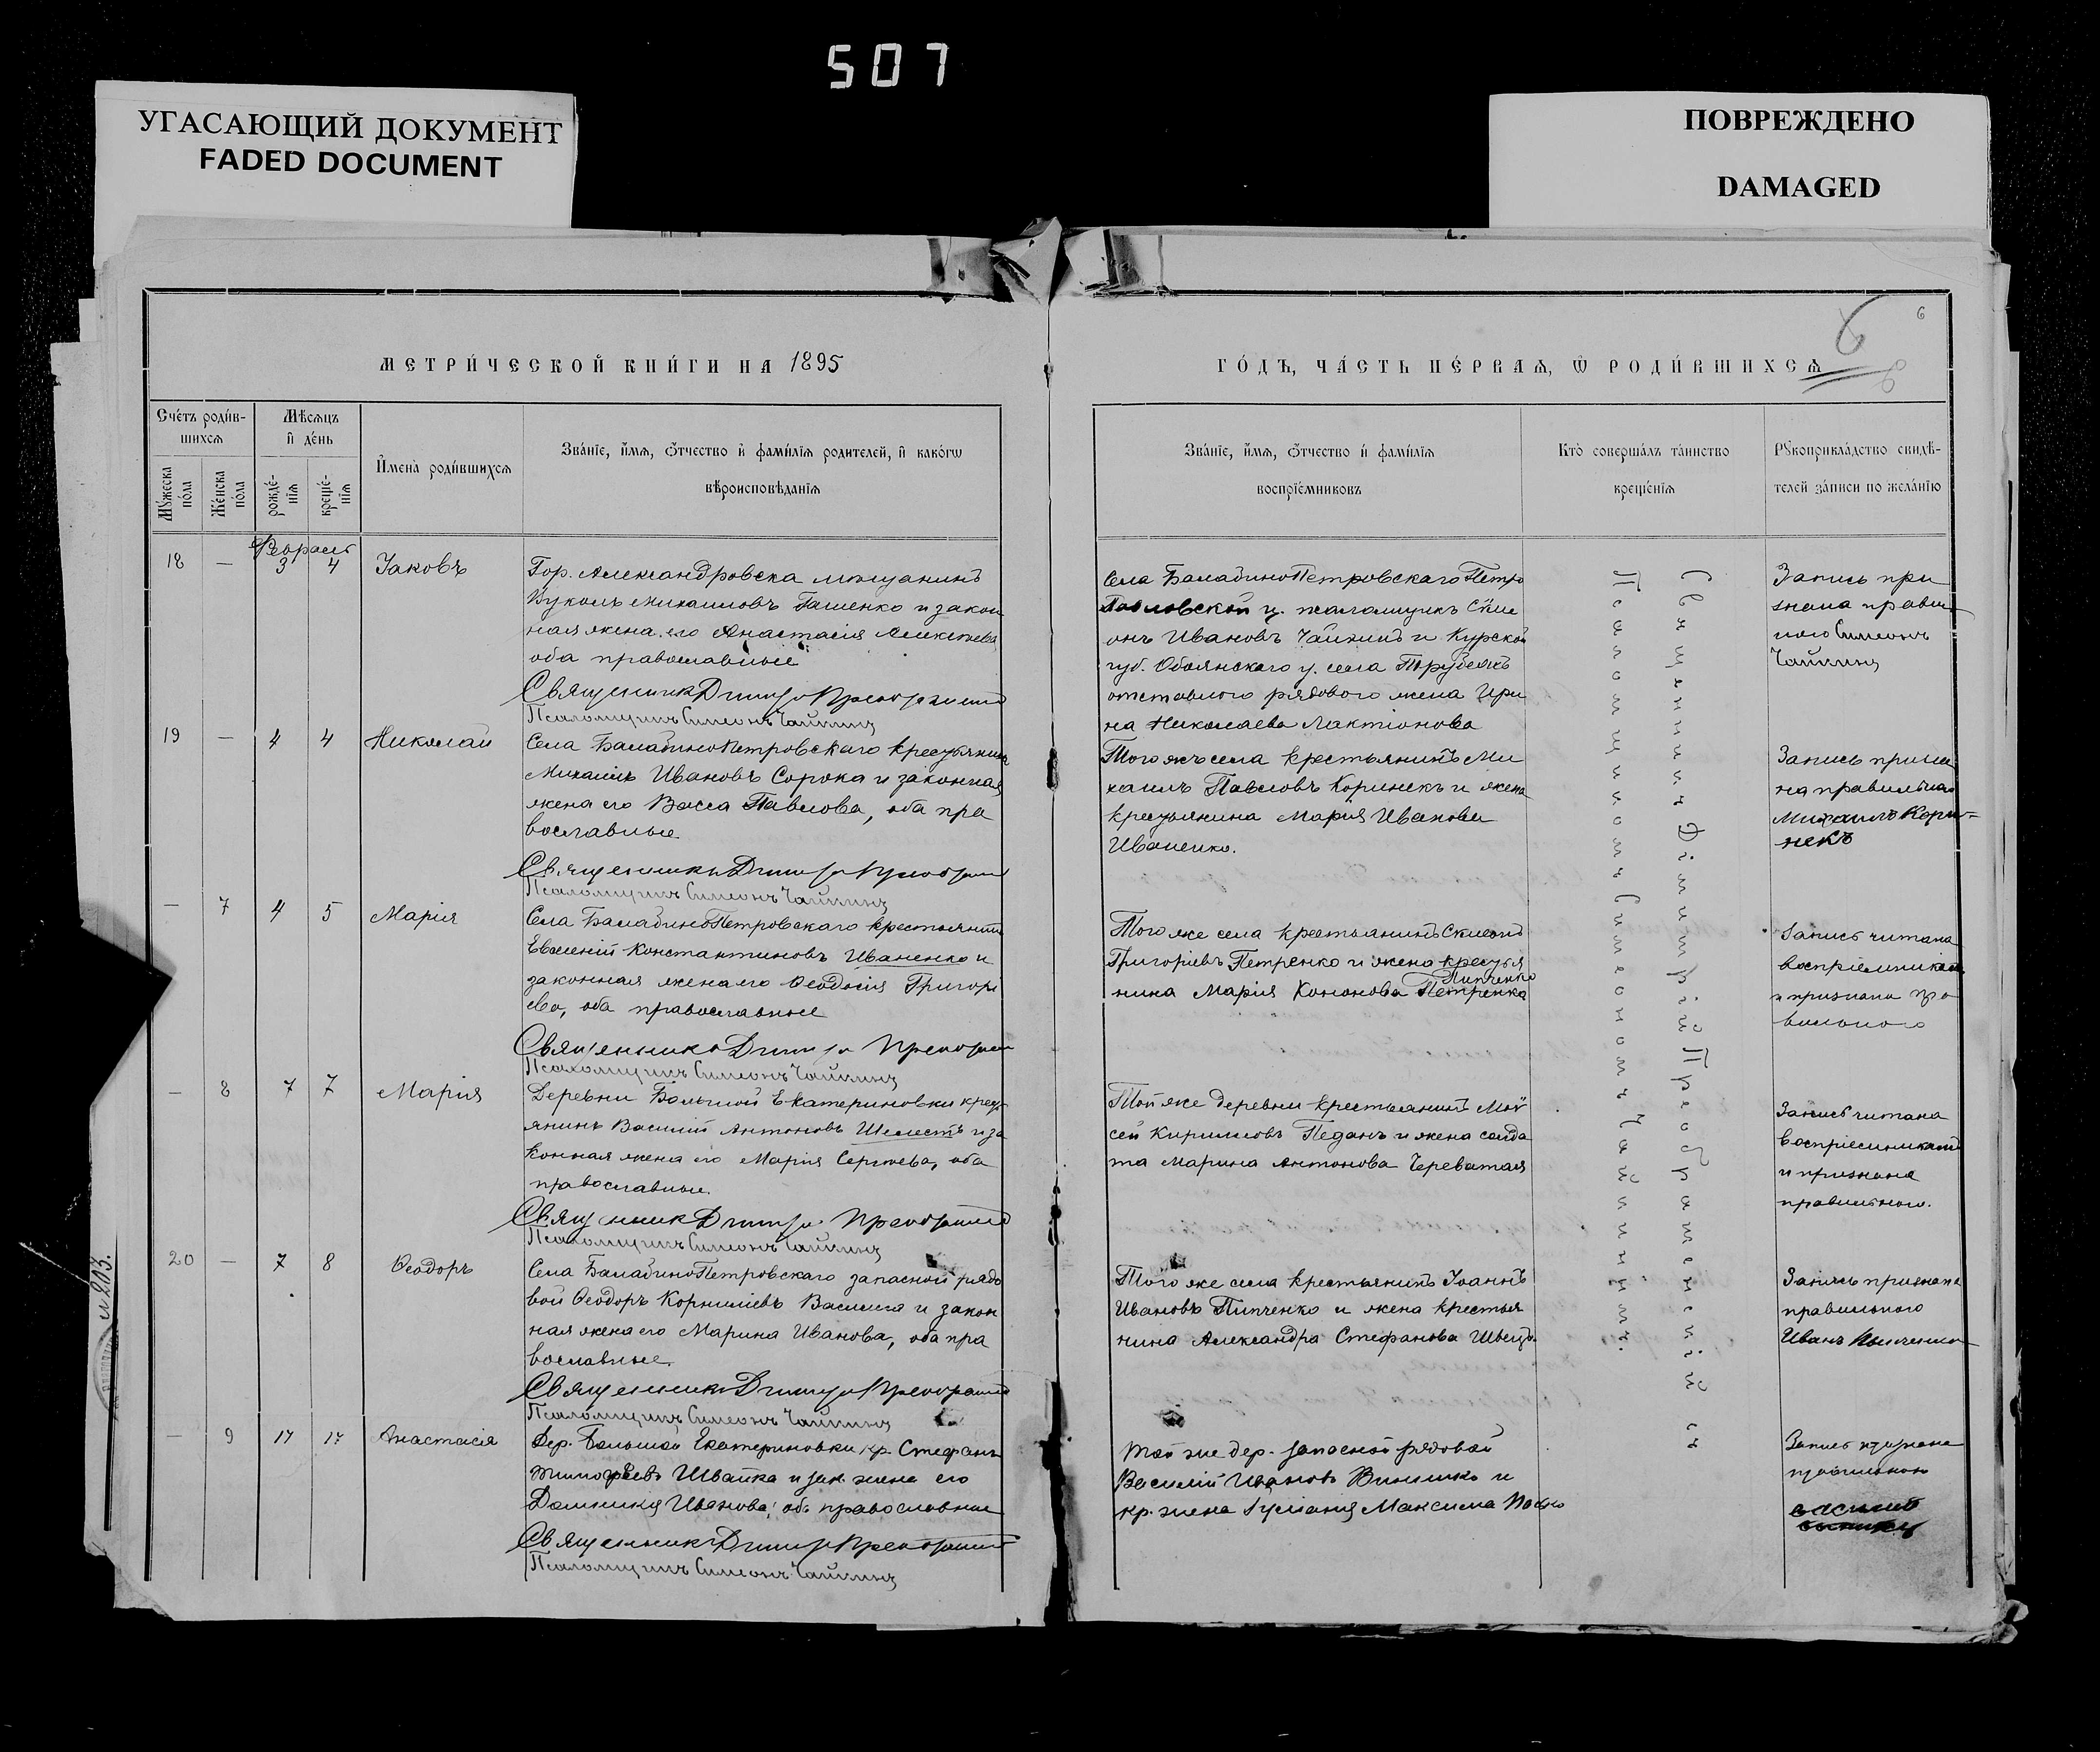 507
УГАСАЮЩИЙ ДОКУМЕНТ
FADED DOCUMENT
ПОВРЕЖДЕНО
DAMAGED
6
МЕТРИ́ЧЕСКОЙ КНИ́ГИ НА 1895
ГО́ДЪ, ЧА́СТЬ ПЕ́РВАѦ, Ѡ РОДИ́ВШИХСѦ
Сче́тъ роди́в-
шихсѧ
Мꙋ́жеска по́ла
Же́нска по́ла
Мѣ́сѧцъ
и҆ де́нь
рожде́-
нїѧ
креще́-
нїѧ
И҆мена̀ роди́вшихсѧ
Зва́нїе, и҆́мѧ, ѻ҆́тчество и҆ фами́лїѧ родителей, и҆ како́гѡ
вѣроисповѣ́данїѧ
Зва́нїе, и҆́мѧ, ѻ҆́тчество и҆ фами́лїѧ
воспрїе́мниковъ
Кто̀ соверша́лъ та́инство
креще́нїѧ
Рꙋкоприкла́дство свидѣ́-
телей за́писи по жела́нїю
Февраль
18 — 3 4 Іаковъ
Гор. Александровска мѣщанинъ
Вуколъ Михаиловъ и закон
ная жена его Анастасія Алексѣева
оба православные
Священникъ Димитрій Преображенскій
Псаломщикъ Симеонъ Чайкинъ
Села БалабиноПетровскаго Петро
Павловской ц. псаломщикъ Симе
онъ Ивановъ Чайкинъ и Курской
губ. Обоянскаго у. села
отставного рядового жена Ири
на Николаева Лактіонова
Запись при
знана правиль
ного Симеонъ
Чайкинъ
19 — 4 4 Николай
Села БалабиноПетровскаго крестьянинъ
Михаилъ Ивановъ Сорока и законная
жена его Васса Павлова, оба пра
вославные
Священникъ Димитрій Преображенскій
Псаломщикъ Симеонъ Чайкинъ
Того жъ села крестьянинъ Ми
хаилъ Павловъ Коринекъ и жена
крестьянина Марія Иванова
Иваненко.
Запись призна
на правильною
Михаилъ Кори=
некъ
— 7 4 5 Марія
Села БалабиноПетровскаго крестьянинъ
Евсевій Константиновъ Иваненко и
законная жена его Ѳеодосія Григорі
ева, оба православные
Священникъ Димитрій Преображенскій
Псаломщикъ Симеонъ Чайкинъ
Того же села крестьянинъ Симеонъ
Григоріевъ Петренко и жена крестья
Пипченко
нина Марія Кононова Петренко
Запись читана
воспріемниками
и признана пра
вильного
— 8 7 7 Марія
Деревни Большой Екатериновки крест
янинъ Василій Антоновъ Шелестъ и за
конная жена его Марія Сергѣева, оба
православные.
Священникъ Димитрій Преображенскій
Псаломщикъ Симеонъ Чайкинъ
Той же деревни крестьянинъ Мой
сей Кирилловъ Педанъ и жена солда
та Марина Антонова Череватая
Запись читана
воспріемниками
и признана
правильного.
20 — 7 8 Ѳеодоръ
Села БалабиноПетровскаго запасной рядо
вой Ѳеодоръ Корниліевъ Василига и закон
ная жена его Марина Иванова, оба пра
вославные.
Священникъ Димитрій Преображенскій
Псаломщикъ Симеонъ Чайкинъ
Того же села крестьянинъ Іоаннъ
Ивановъ Пипченко и жена крестья
нина Александра Стефанова Швецъ.
Запись признана
правильного
Иванъ Пипченко
— 9 17 17 Анастасія
Дер. Большой Екатериновки кр. Стефанъ
Тимофѣевъ Швайка и зак. жена его
Домникія Иванова, оба православные
Священникъ Димитрій Преображенскій
Псаломщикъ Симеонъ Чайкинъ
Той же дер. запасной рядовой
Василій Ивановъ и
кр. жена Максима
Запись признана
правильною
Василий
Священникъ Димитрій Преображенскій съ
Псаломщикомъ Симеономъ Чайкинымъ.
л 203.